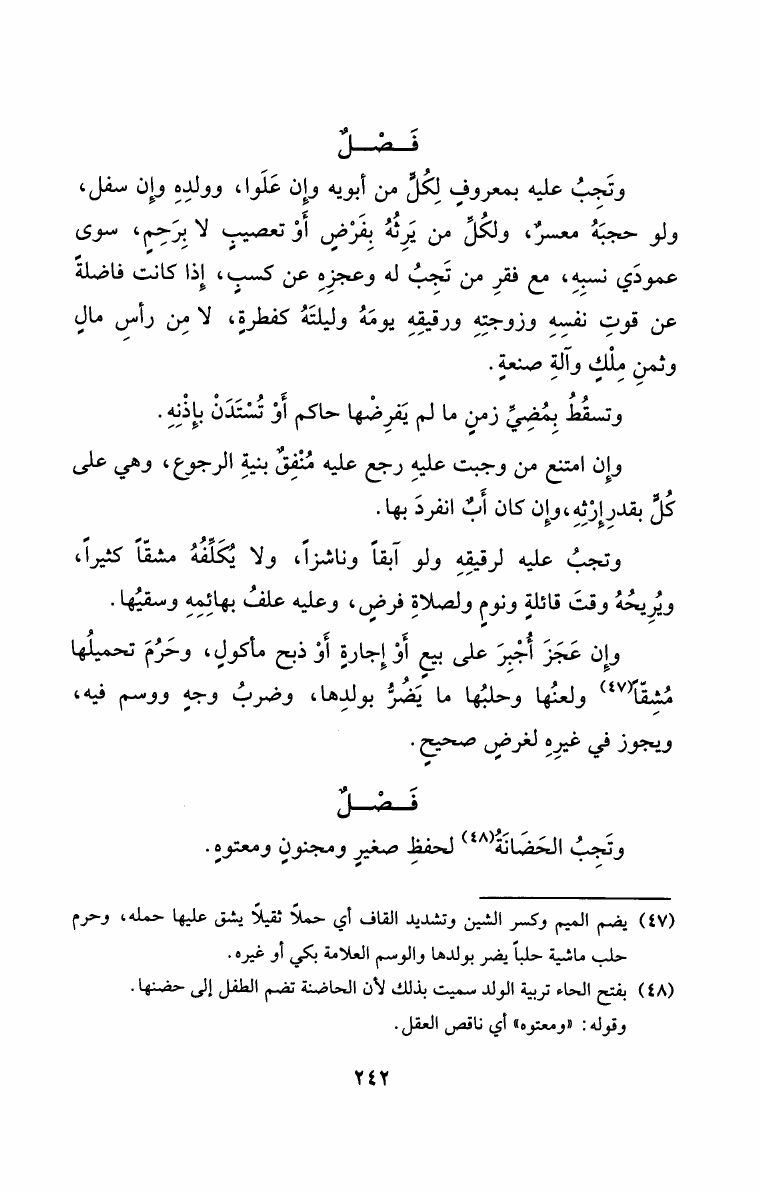 فَــصْــلٌ
وتَجِبُ عليه بمعروفٍ لِكُلٍّ من أبويه وإن عَلَوا، وولدِهِ وإن سفل،
ولو حجبَهُ معسرٌ، ولكُلِّ من يَرِثُهُ بِفَرْضٍ أَوْ تعصيبٍ لا بِرَحِمٍ، سوى
عمودَي نسبِهِ، مع فقرِ من تَجِبُ له وعجزِهِ عن كسبٍ، إذا كانت فاضلةً
عن قوتِ نفسِهِ وزوجتِهِ ورقيقِهِ يومَهُ وليلتَهُ كفطرةٍ، لا مِن رأسِ مالٍ
وثمنِ مِلْكٍ وآلةِ صنعةٍ.
وتسقُطُ بِمُضِيِّ زمنٍ ما لم يَفرِضْها حاكم أَوْ تُسْتَدَنْ بإذْنِهِ.
وإن امتنع من وجبت عليهِ رجع عليه مُنْفِقٌ بنيةِ الرجوعِ، وهي على
كُلٍّ بقدرِإرْثِهِ،وإن كان أَبٌ انفردَ بها.
وتجبُ عليه لرقيقِهِ ولو آبقاً وناشزاً، ولا يُكَلِّفُهُ مشقّاً كثيراً،
ويُرِيحُهُ وقتَ قائلةٍ ونومٍ ولصلاةِ فرضٍ، وعليه علفُ بهائِمِهِ وسقيُها.
وإن عَجَزَ أُجْبِرَ على بيعٍ أَوْ إجارةٍ أَوْ ذبح مأكولٍ، وحَرُمَ تحميلُها
مُشِقّاً(٤٧) ولعنُها وحلبُها ما يَضُرُّ بولدِها، وضربُ وجهٍ ووسم فيه،
ويجوز في غيرِهِ لغرضٍ صحيحٍ.
فَــصْــلٌ
وتَجِبُ الحَضَانَةُ(٤٨) لحفظِ صغيرٍ ومجنونٍ ومعتوهٍ.
(٤٧) يضم الميم وكسر الشين وتشديد القاف أي حملاً ثقيلاً يشق عليها حمله، وحرم
حلب ماشية حلباً يضر بولدها والوسم العلامة بكي أو غيره.
(٤٨) بفتح الحاء تربية الولد سميت بذلك لأن الحاضنة تضم الطفل إلى حضنها.
وقوله: «ومعتوه» أي ناقص العقل.
٢٤٢